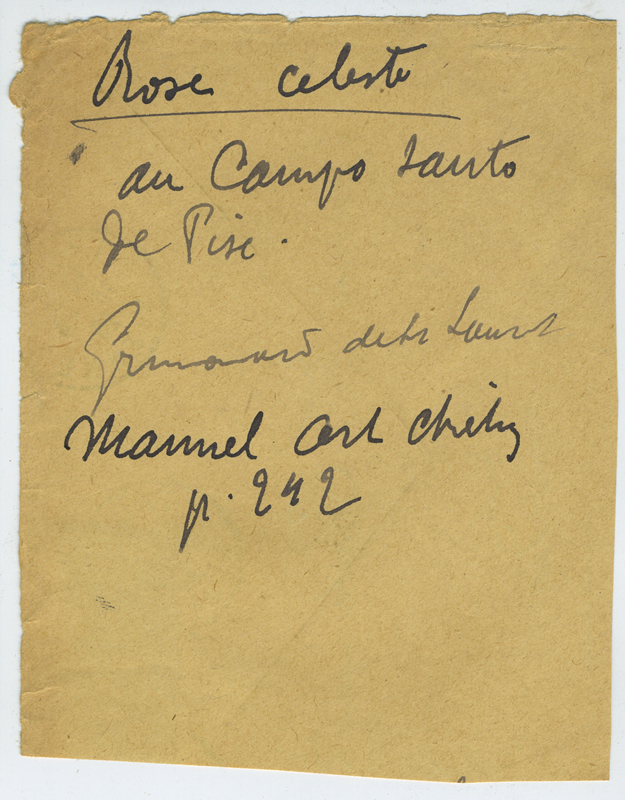 Rose celeste
au Campo Santo
de Pise.
Grimouard de St Laurent
Manuel Art Chrétien
p. 242